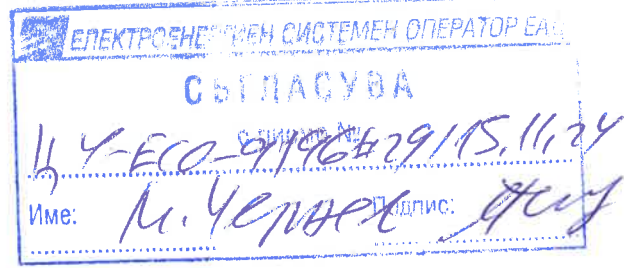 ЕЛЕКТРОЕНЕРГИЕН СИСТЕМЕН ОПЕРАТОР ЕАД
СЪГЛАСУВА
с писмо №
ЦУ-ЕСО-9196#29/15.11.24
Име: М. Чернев Подпис: